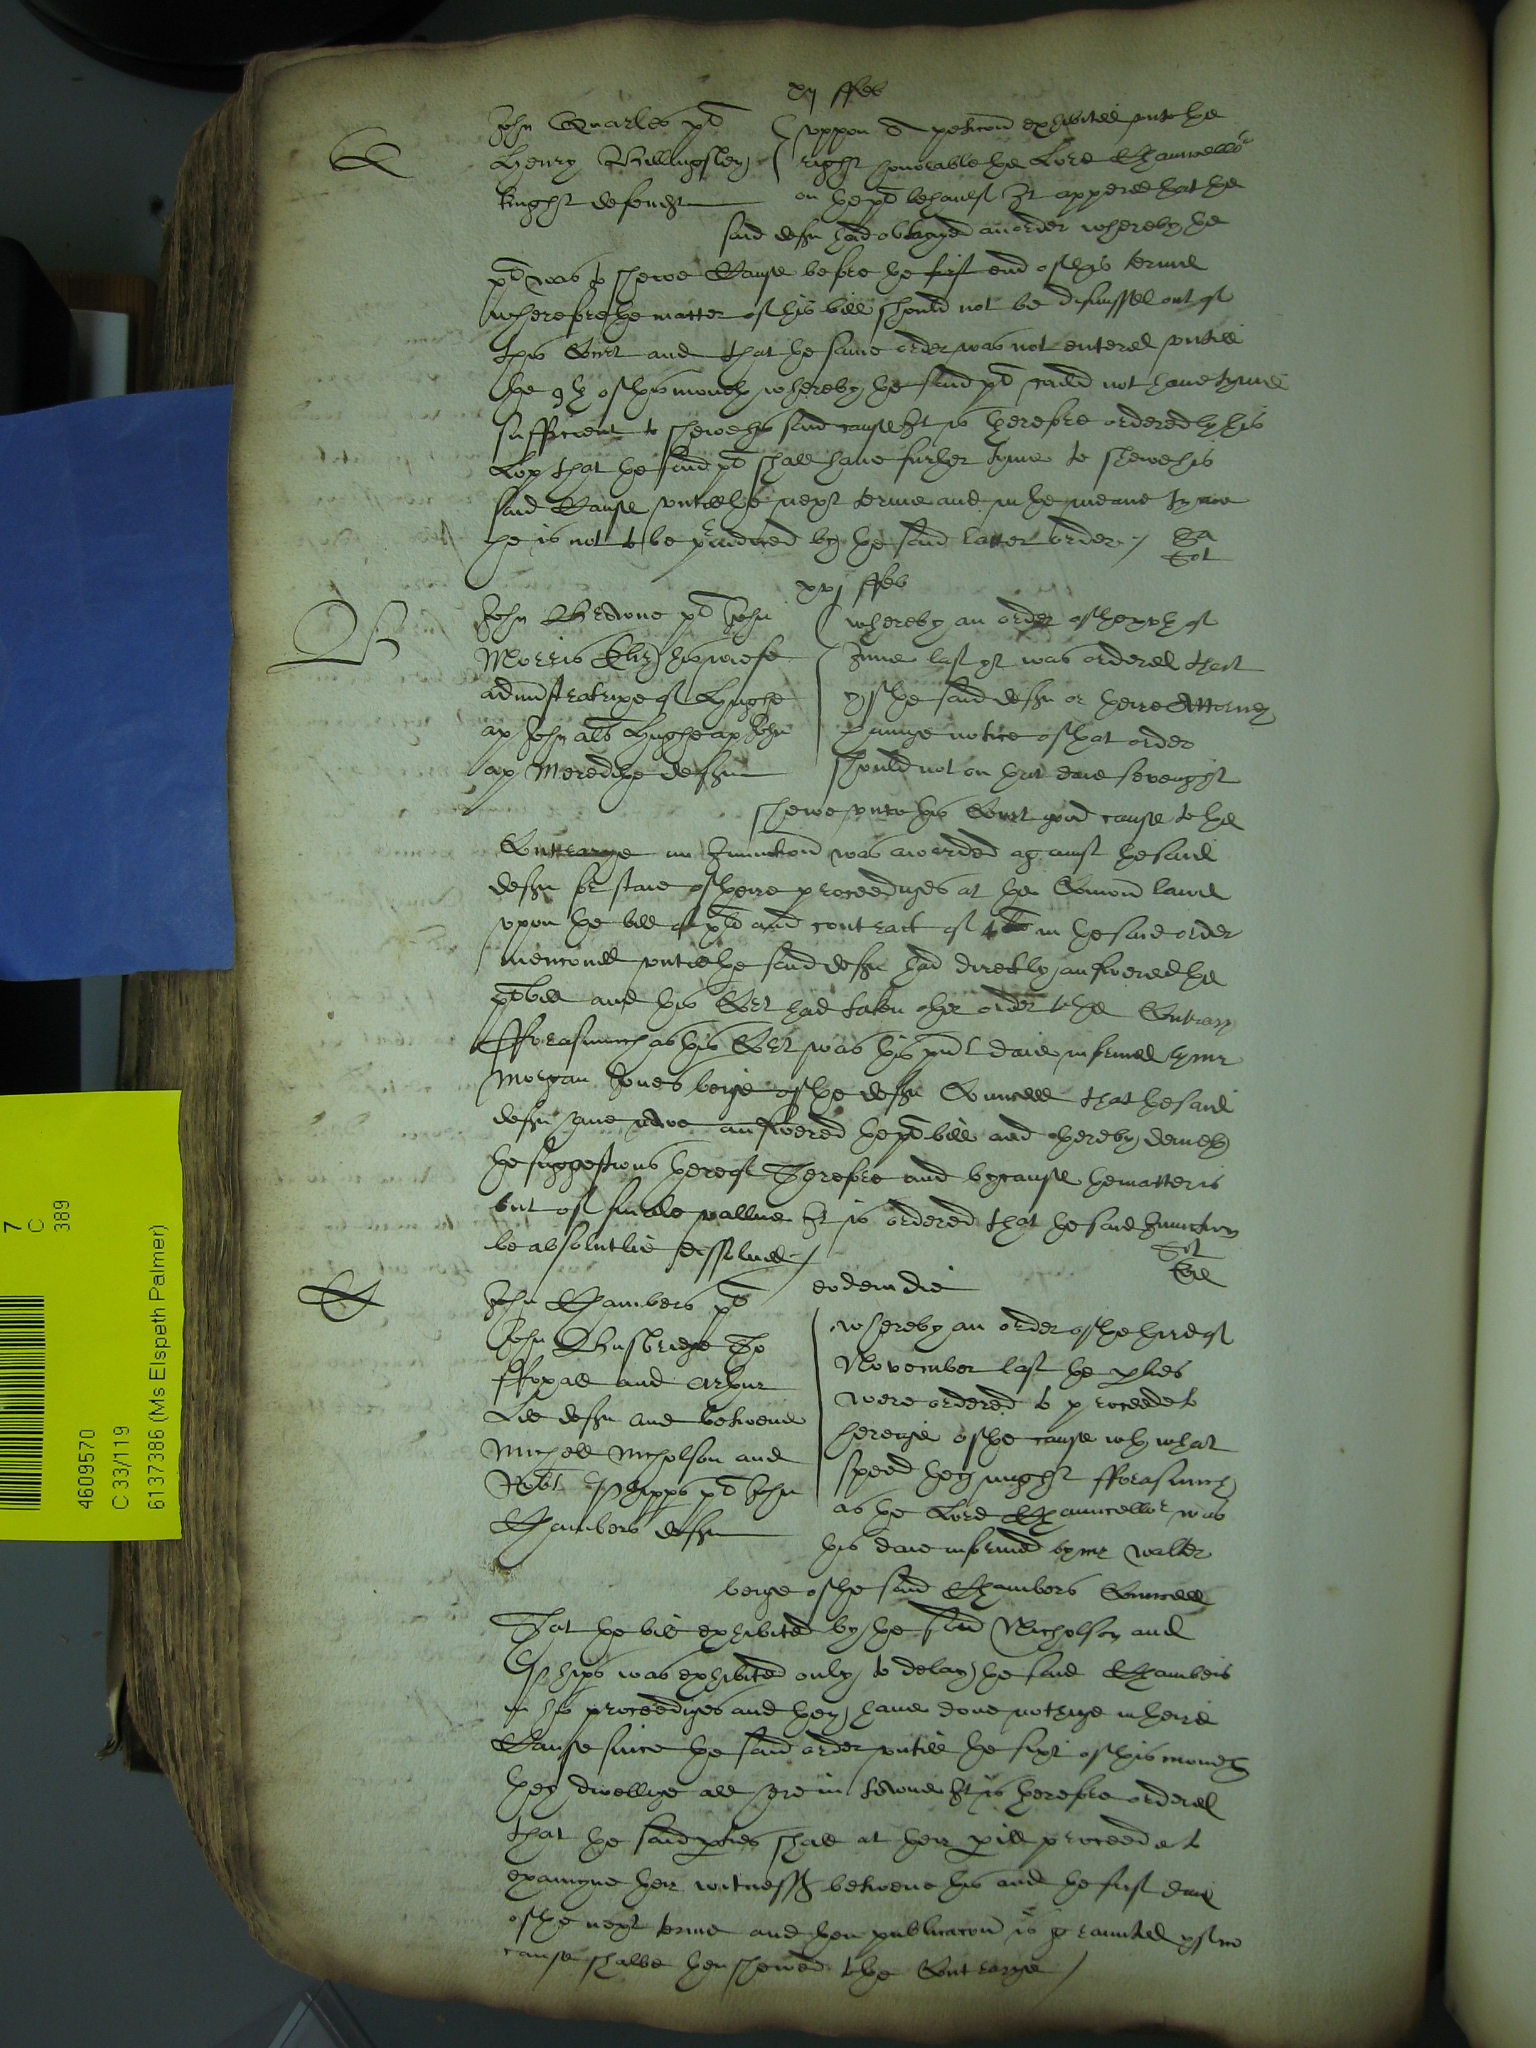 xij ffeb
Q
John Quarles pl
Henry Billingsley
knight defendt
vppon a peticon exhibited vnto the
right honorable the Lord Chauncellor
on the pl behaulf It appered that the
said deft had obtayned an order whereby the
pl was to shewe Cause before the first end of this terme
wherefore the matter of his bill should not be dismissed out of
this Court and that the same order was not entered vntill
the 9th of this moneth whereby the said pl could not haue tyme
sufficient to shewe his said cause It is therefore ordered by his
Lop that the said pl shall haue further tyme to shewe his
said Cause vntill the next terme and in the meane tyme
he is not to be preiudiced by the said latter order
xvj ffeb
John pl John
Morris his wiefe
administratrixe of Hughe
ap John als Hughe ap John
ap Meredithe deften
whereby an order of the xvth of
June last yt was ordered that
yf the said deften or theire Attorney
hauinge notice of that order
should not on that daie sevenight
shewe vnto this Court good cause to the
Contrarye an Iniunction was awarded against the said
deften for staie of theire proceedinges at the Comon lawe
vpon the bill of and contract of in the said order
mencioned vntill the said deften had directly answered the
pl bill and this Cort had taken other order to the Contrary
fforasmuch as this Cort was this pnt daie informed by mr
Morgan Jones beige of the deften Councell that the said
deften haue nowe answered the pl bill and thereby denieth
the suggestions thereof Therefore and bycause the matter is
but of smale vallue It is ordered that the said Iniunction
be absolutlie dissolued
eodem die
C
John Chambers pl
John Tho
ffoxall and Arthur
Lee deften and betwene
Michell Nicholson and
Robt Phipps pl John
Chambers deften
whereby an order of the third of
November last the pties
were ordered to proceede to
heringe of the cause wth what
speed they might fforasmuch
as the Lord Chauncellor was
this daie informed by mr Walter
beige of the said Chambers Councell
That the bill exhibited by the said Nicholson and
Phips was exhibited only to delay the said Chambers
in his proceedinges and they haue done nothinge in theire
Cause since the said order vntill the sixt of this moneth
they dwellinge all here in towne It is therefore ordered
that the said pties shall at their perill proceed to
examyne their witnesses betwene this and the first daie
of the next terme and then publicacon is graunted yf no
cause shalbe then shewed to the Contrarye
7
C
389
4609570
C 33/119
6137386 (Ms Elspeth Palmer)